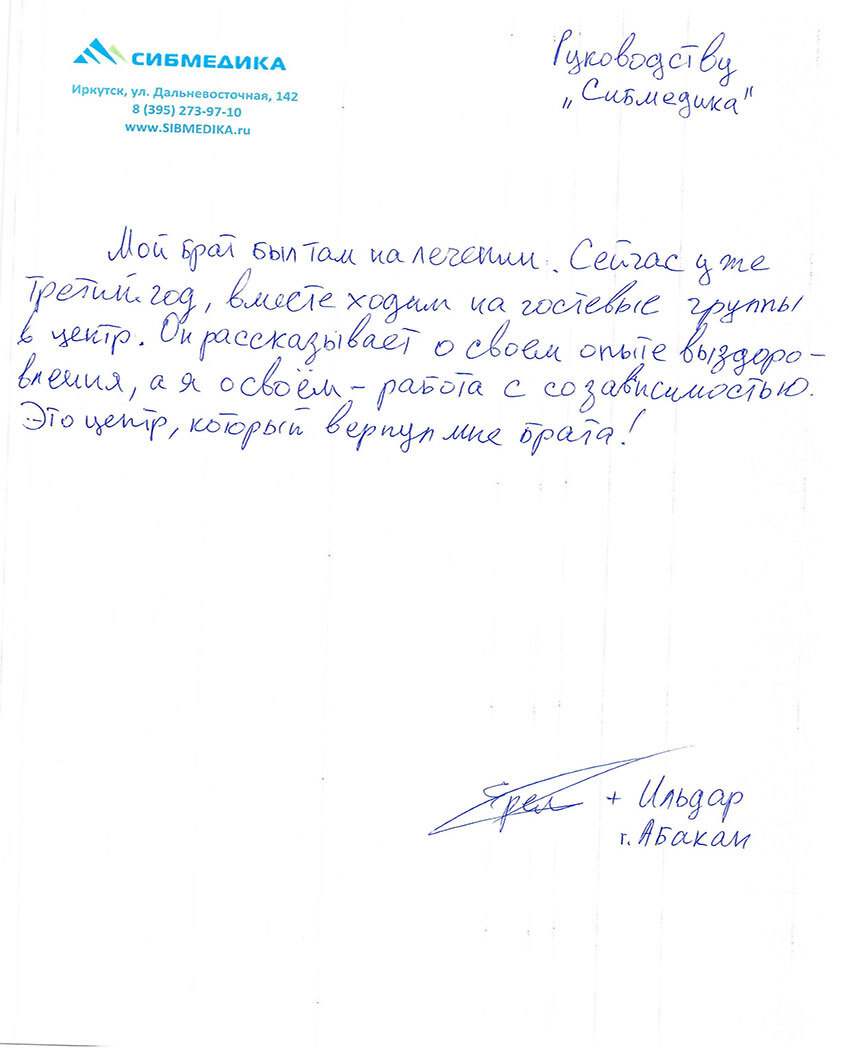 СИБМЕДИКА
Иркутск, ул. Дальневосточная, 142
8 (395) 273-97-10
www.SIBMEDIKA.ru
Руководству
„Сибмедика"
Мой брат был там на лечении. Сейчас уже
третий год, вместе ходим на гостевые группы
в центр. Он рассказывает о своем опыте выздоро-
вления, а я о своём - работа с созависимостью.
Это центр, который вернул мне брата!
+ Ильдар
г. Абакан